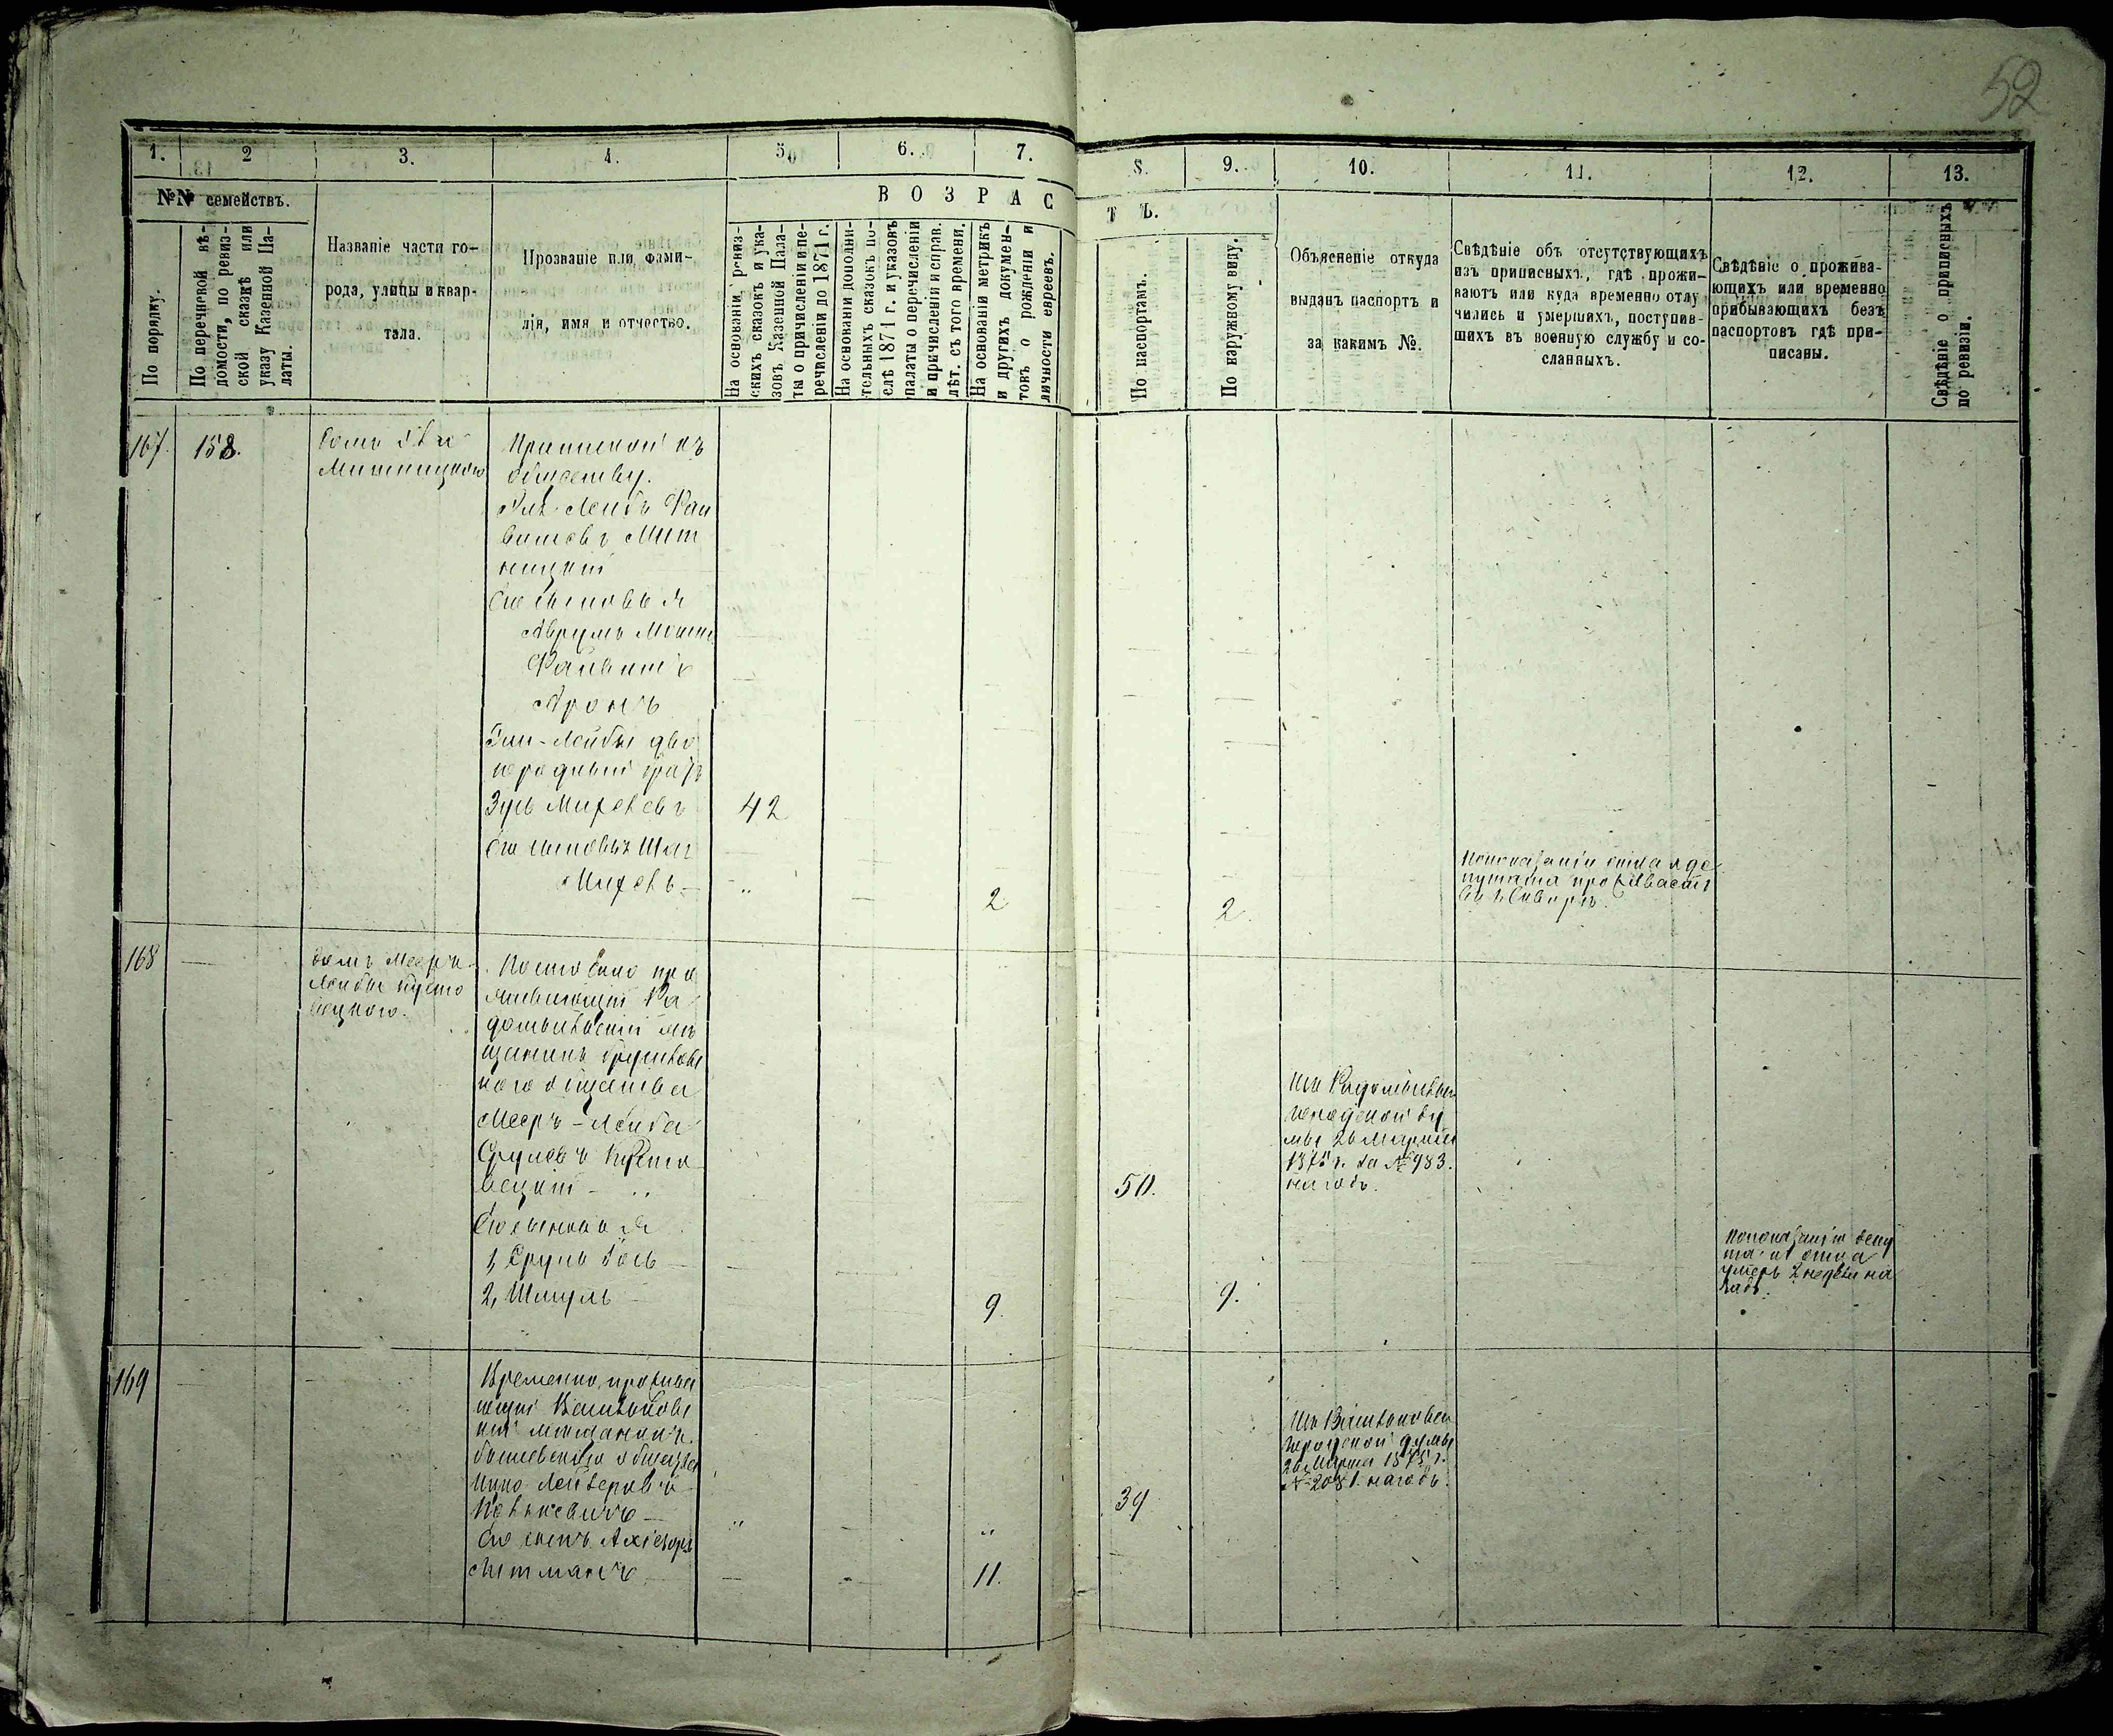 52
1. 2 3. 4. 5. 6. 7. 8. 9. 10. 11. 12. 13.
№№ семействъ.
По порядку.
По перечневой вѣ-
домости, по ревиз-
ской сказкѣ или
указу Казенной Па-
латы.
Названіе части го-
рода, улицы и квар-
тала.
Прозваніе или фами-
лія, имя и отчество.
ВОЗРАСТЪ.
На основаніи ревиз-
скихъ сказокъ и ука-
зовъ Казенной Пала-
ты о причисленіи и пе-
речисленіи до 1871 г.
На основаніи дополни-
тельныхъ сказокъ по-
слѣ 1871 г. и указовъ
палаты о перечисленіи
и причисленіи и справ.
лѣт. съ того времени.
На основаніи метрикъ
и другихъ докумен-
товъ о рожденіи и
личности евреевъ.
По паспортамъ.
По наружному виду.
Объясненіе откуда
выданъ паспортъ и
за какимъ №.
Свѣдѣніе объ отсутствующихъ
изъ приписныхъ, гдѣ прожи-
ваютъ или куда временно отлу
чились и умершихъ, поступив-
шихъ въ военную службу и со-
сланныхъ.
Свѣдѣніе о прожива-
ющихъ или временно
прибывающихъ безъ
паспортовъ гдѣ при-
писаны.
Свѣдѣніе о приписныхъ
по ревизіи.
167. 158.
Домъ
Митницкого
Приписной къ
обществу.
Лейба Фай
вишевъ Мит
ницкій
Его сыновья
Аврумъ Мошко
Файвишъ
Аронъ
Лейбы дво
юродный братъ
Зусь 42
Его сыновья
2 2.
По показанію отца и де
путата проживаетъ
168
Домъ Меера
Лейбы Пусто
вецкого.
Постоянно про
живающій Ра
домысльскій мѣ
щанинъ
ного общества
Мееръ-Лейба
Срулевъ Пусто
вецкій 50.
Изъ Радомысльск
городской ду
мы 26 Марта
1875 г. за № 983.
на годъ.
Его сыновья
1, Сруль
2, Шмуль 9 9.
По показанію депу
тата и отца
умеръ 2 недѣли на
задъ.
169
Временно прожива
ющій Васильковс
кій мещанинъ
общества
39
Изъ Васильковск
городской думы
26 Марта 1875 г.
№ 2081. на годъ.
Его сынъ
11.